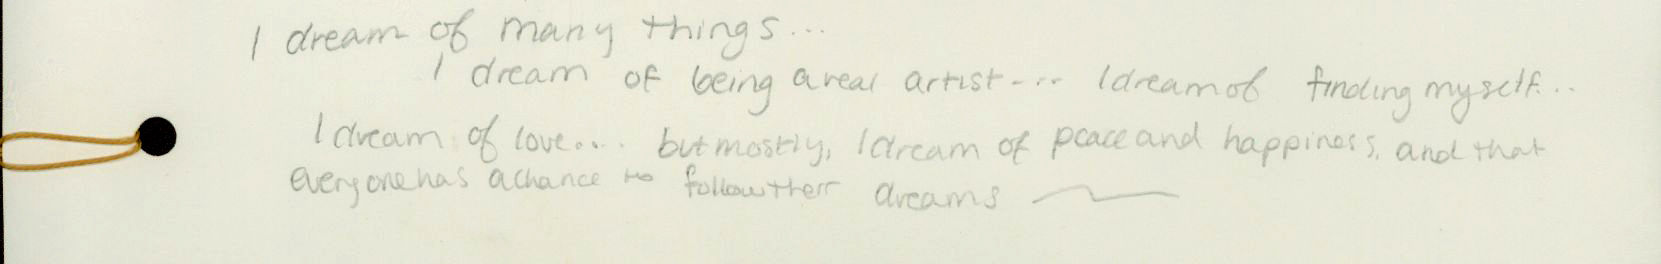 I dream of many things...
I dream of being a real artist.... I dream of finding myself...
I dream of love.... but mostly, I dream of peace and happiness, and that
everyone has a chance to follow their dreams